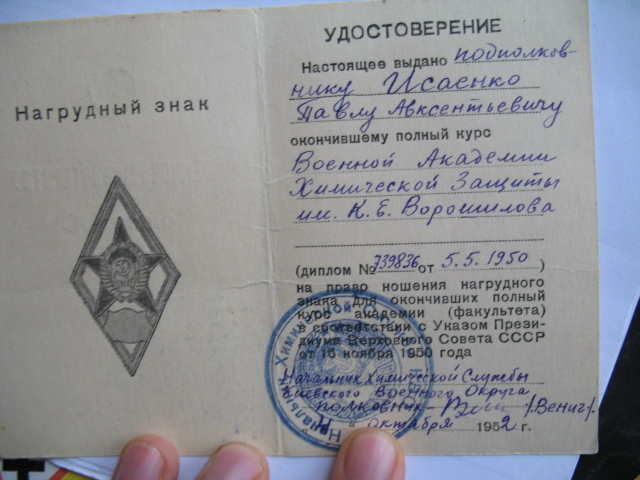 Нагрудный знак
УДОСТОВЕРЕНИЕ
Настоящее выдано подполков-
нику Исаенко
Павлу Авксентьевичу
окончившему полный курс
Военной Академии
Химической Защиты
им. К. Е. Ворошилова
(диплом № 739836 от 5.5.1950)
на право ношения нагрудного
знака для окончивших полный
курс академии (факультета)
в соответствии с Указом Прези-
диума Верховного Совета СССР
от 16 ноября 1950 года
Начальник Химической Службы
Киевского Военного Округа
полковник /Вениг/.
" октября 1952 г.